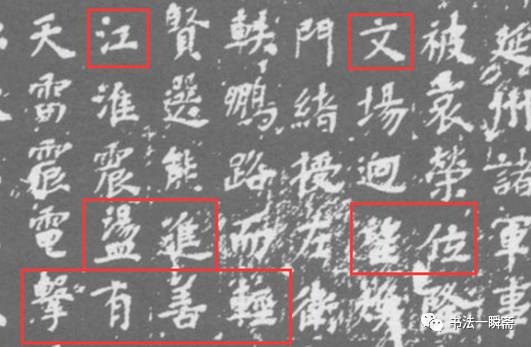 延州諸軍事
被袞榮位
文場迥
門緒授左衛
軼鵬路而輕
賢選能進善
江淮震盪有
天雷震電擊
书法一瞬斋